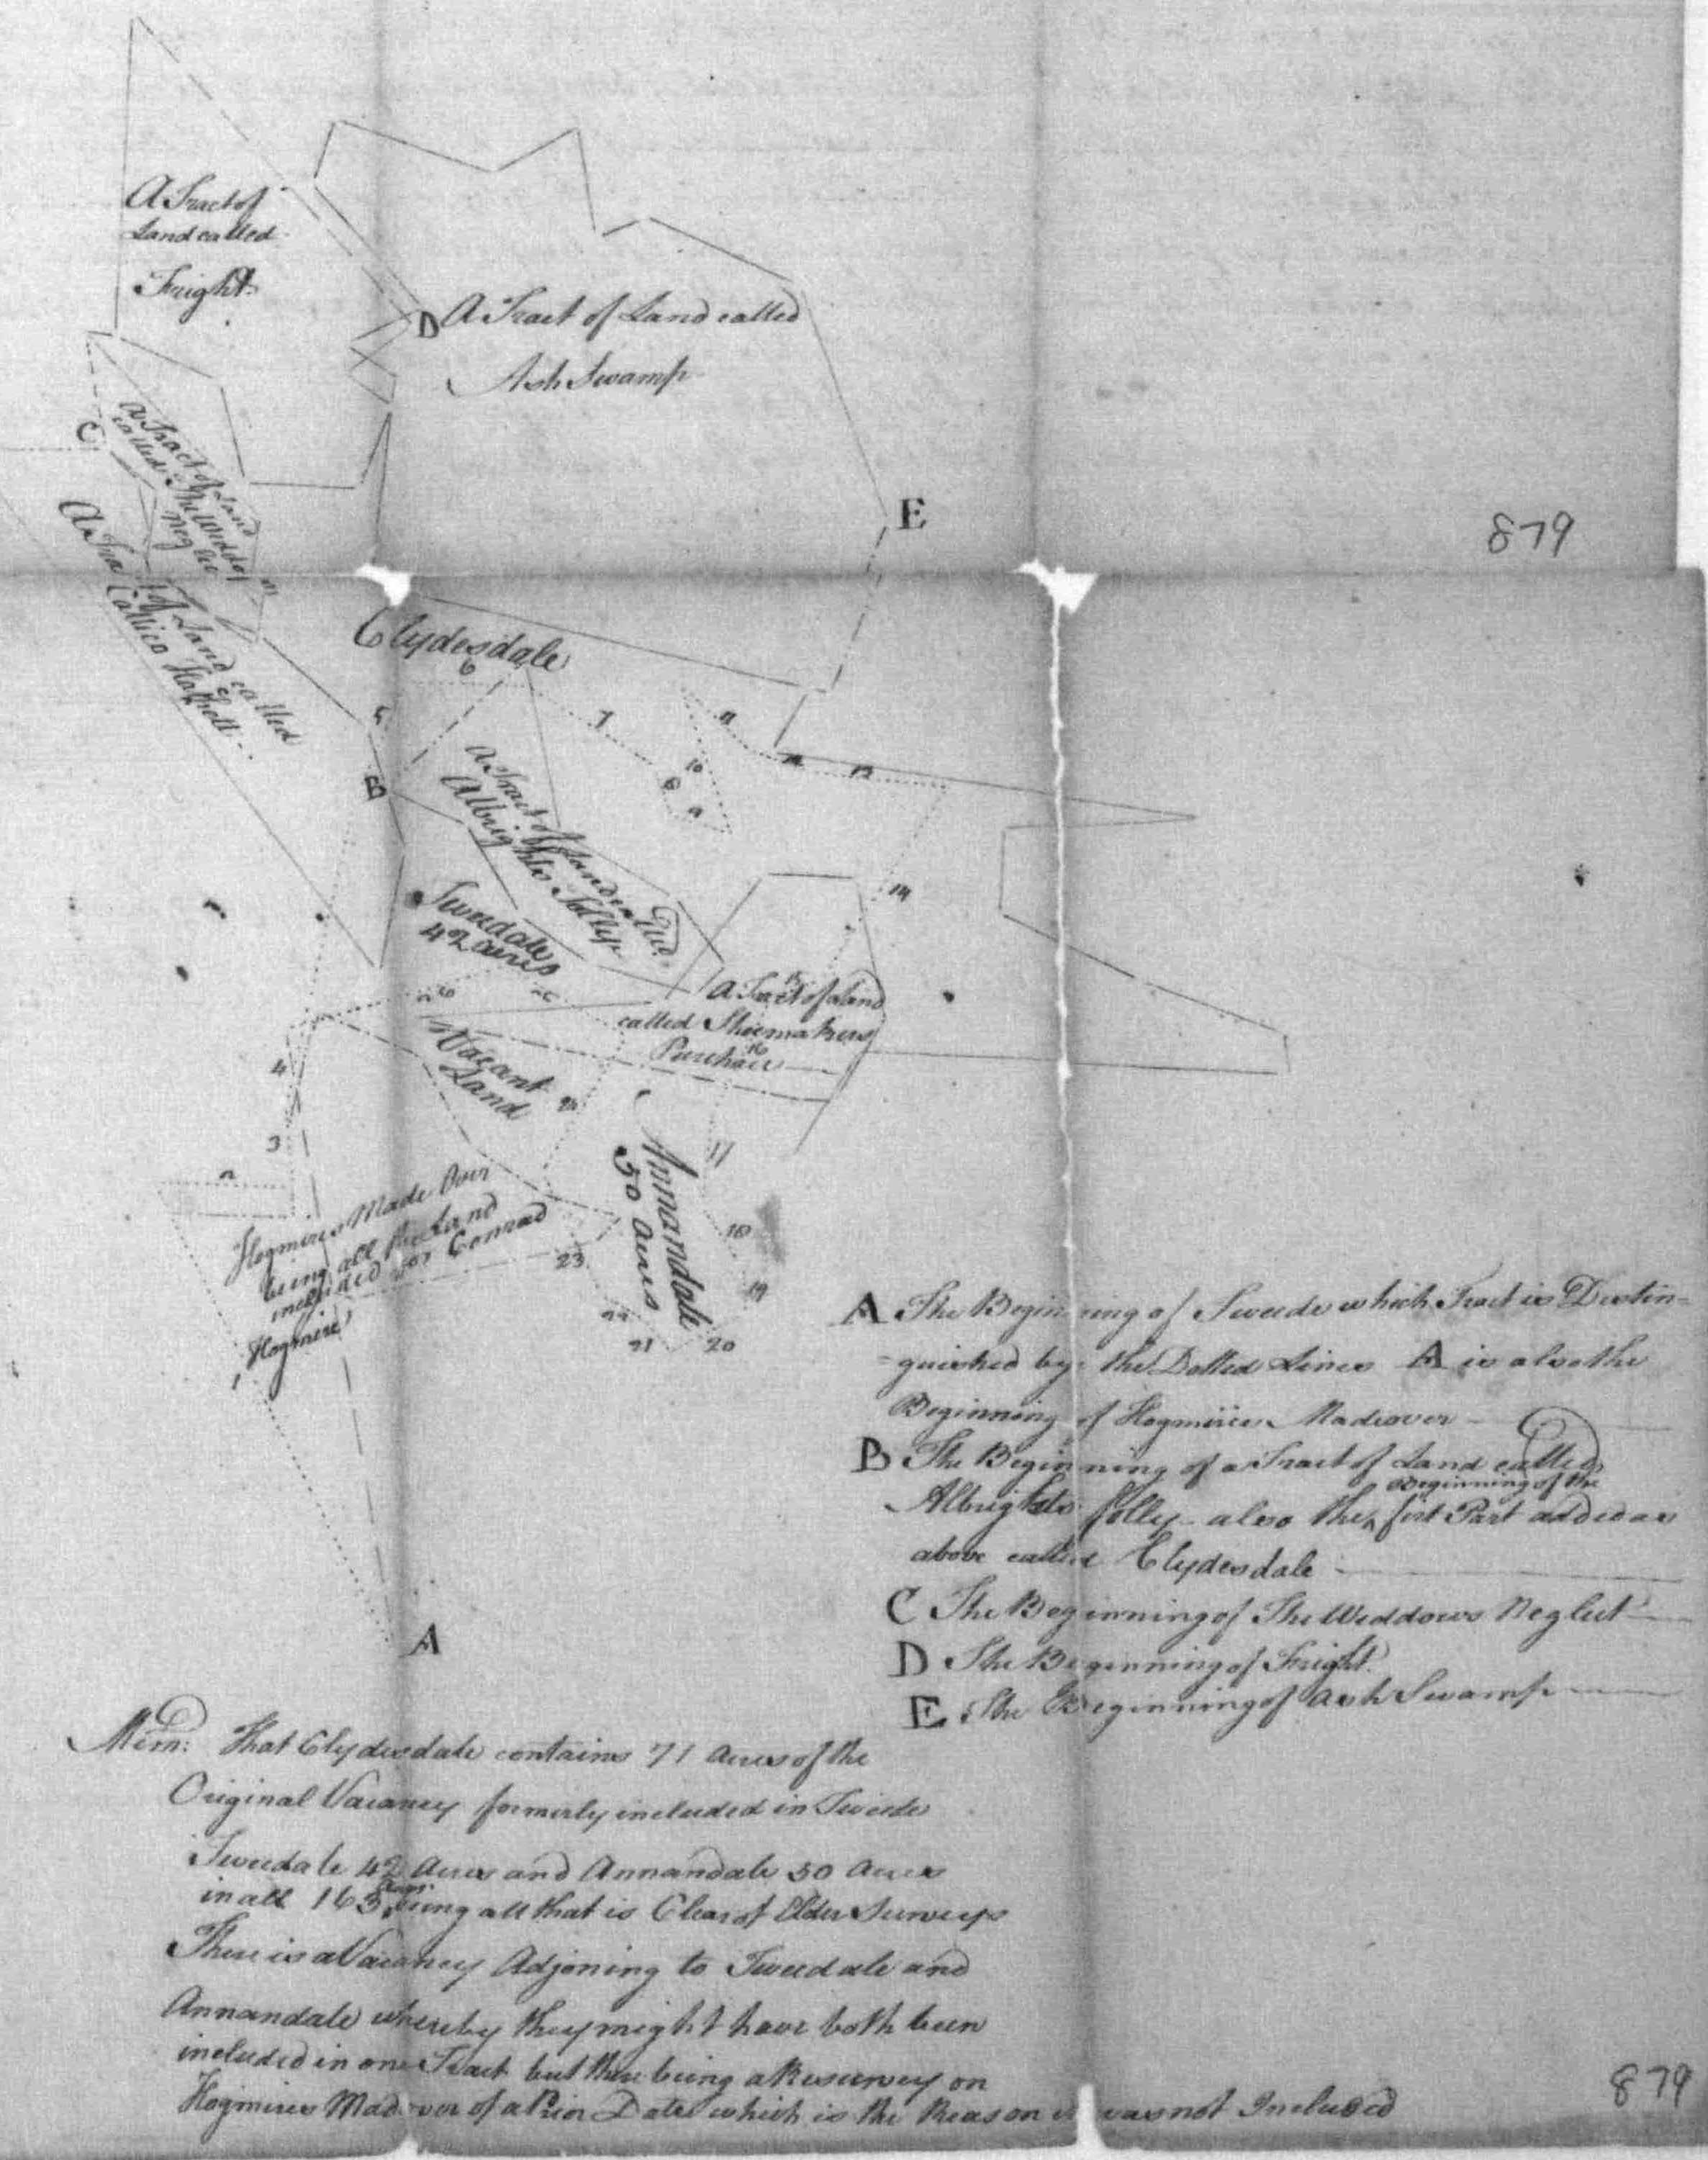 A Tract of
Land called
Fright
D
A Tract of Land called
Ash Swamp
C
A Tract of Land
called The Widdos
Neglec
E
879
A Tra of Land called
Callico
Clydesdale
6
5
7
11
10
8
9
12
B
A Tract of Land called
Albrights Folly
14
Tweedale
42 acres
15
A Tract of Land
called Shoemakers
16
Purchase
26
Vacant
Land
4
3
2
24
17
Annandale
50 Acres
18
19
20
21
22
23
Hogmires Made Over
being all the Land
included for Conrad
Hogmire
1
A
A The Beginning of Tweede which Tract is Distin-
guished by the Dotted Lines A is also the
Beginning of Hogmires Madeover
B The Beginning of a Tract of Land called
Beginning of the
Albrights folly also the ^ first Part added as
above called Clydesdale
C The Beginning of The Widdows Neglect
D The Beginning of Fright.
E The Beginning of Ash Swamp
Mem: That Clydesdale contains 71 Acres of the
Original Vacancy formerly included in Tweede
Tweedale 42 Acres and Annandale 50 Acres
in all 163 Acres being all that is Clear of Elder Surveys
There is a Vacancy Adjoning to Tweedale and
Annandale whereby they might have both been
included in one Tract but there being a Resurvey on
Hogmires Mad over of a Prior Date which is the Reason it was not Included
879